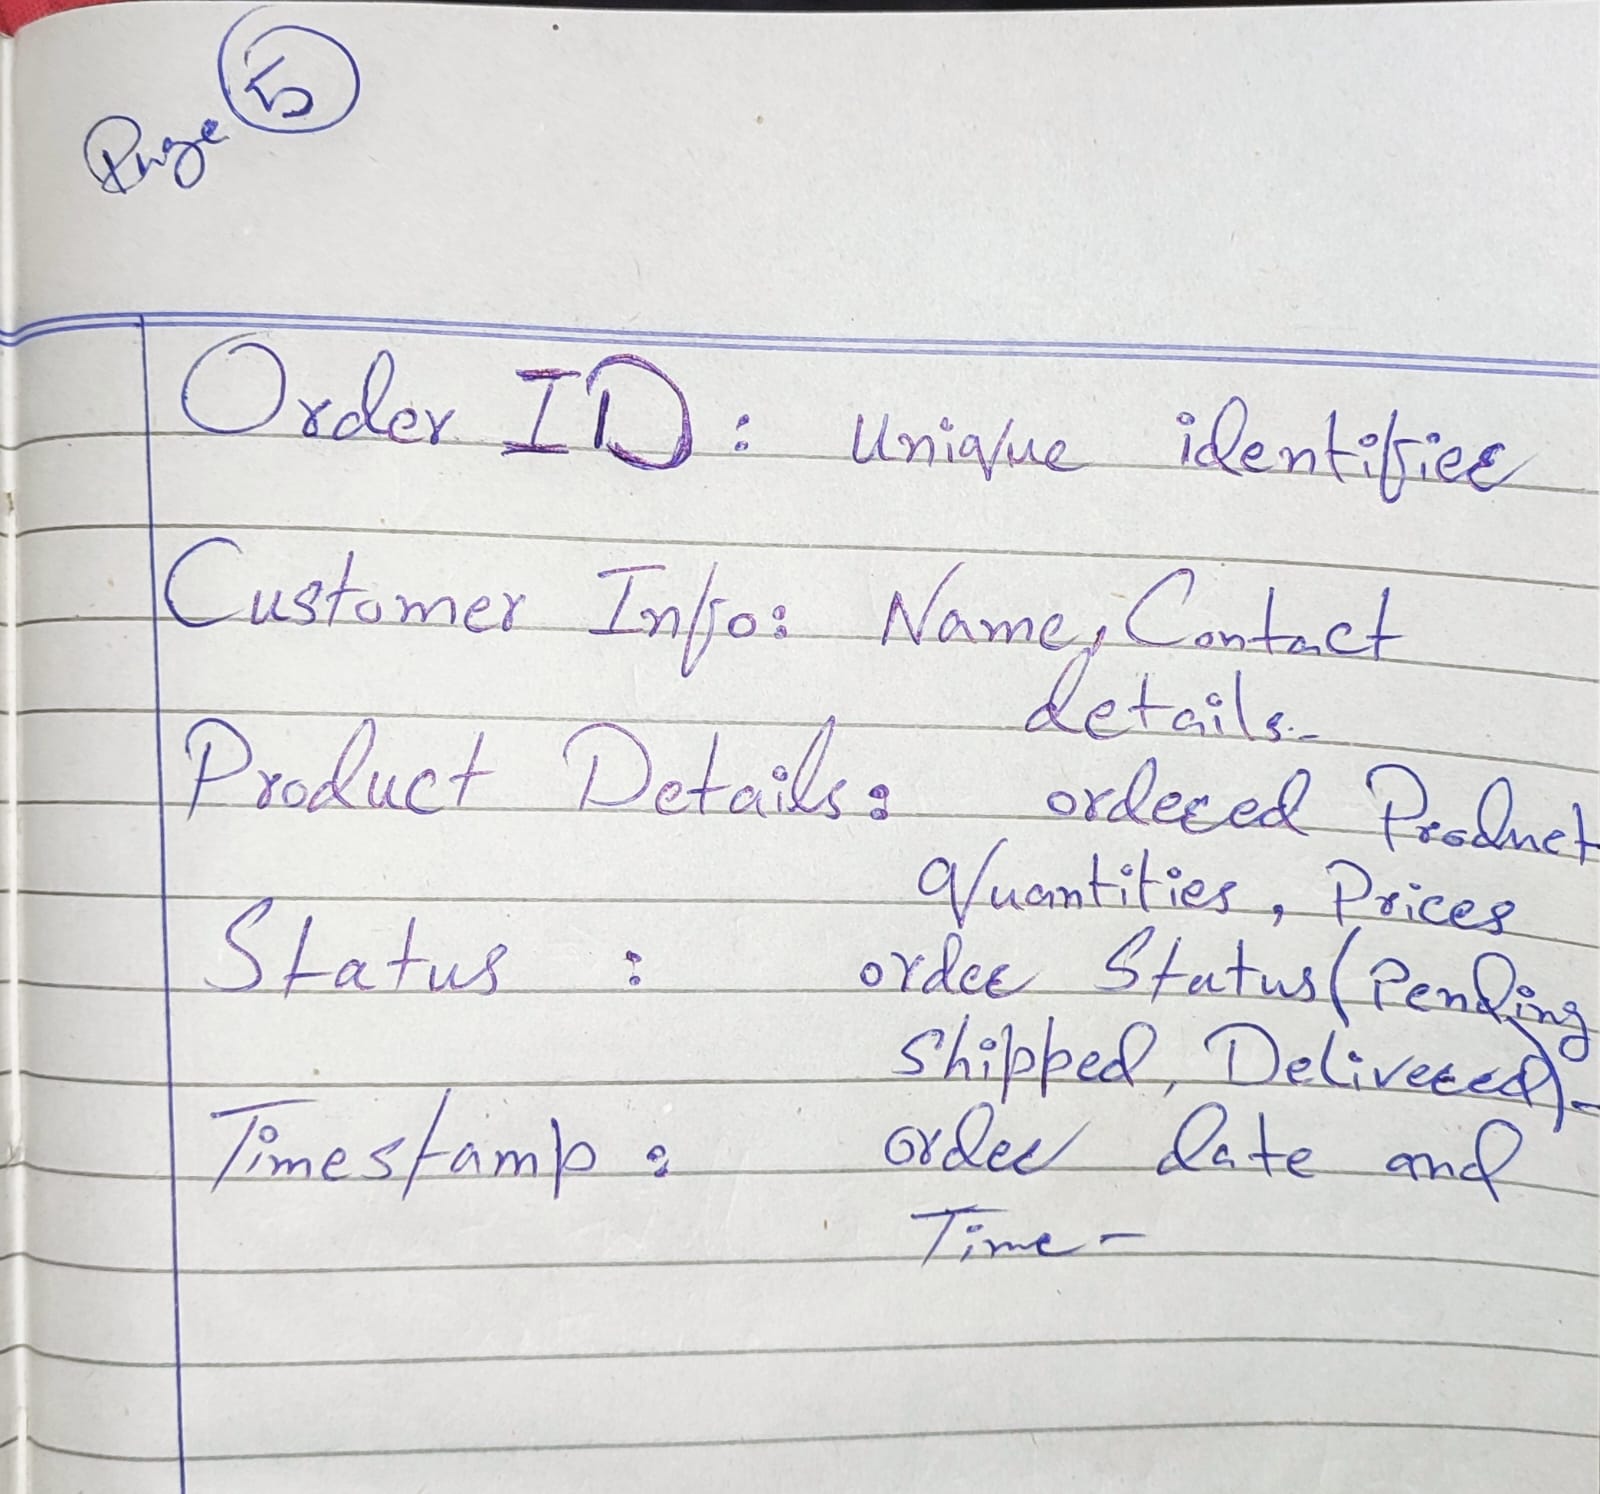 Page 5
Order ID : Unique identifier
Customer Info: Name, Contact
details.
Product Details: ordered Product
Quantities, Prices
Status : order Status (Pending
Shipped, Delivered)-
Timestamp: order date and
Time-